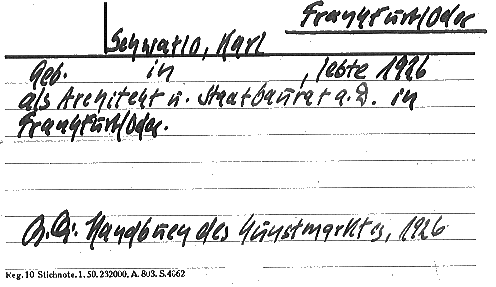 Frankfurt/Oder
Schwatlo, Karl
Geb. in , lebte 1926
als Architekt u. Staatbaurat a.D. in
Frankfurt/Oder.
Handbuch des Kunstmarktes, 1926
Reg. 10 Stichnote. 1. 50. 232000. A. 803. S. 4662